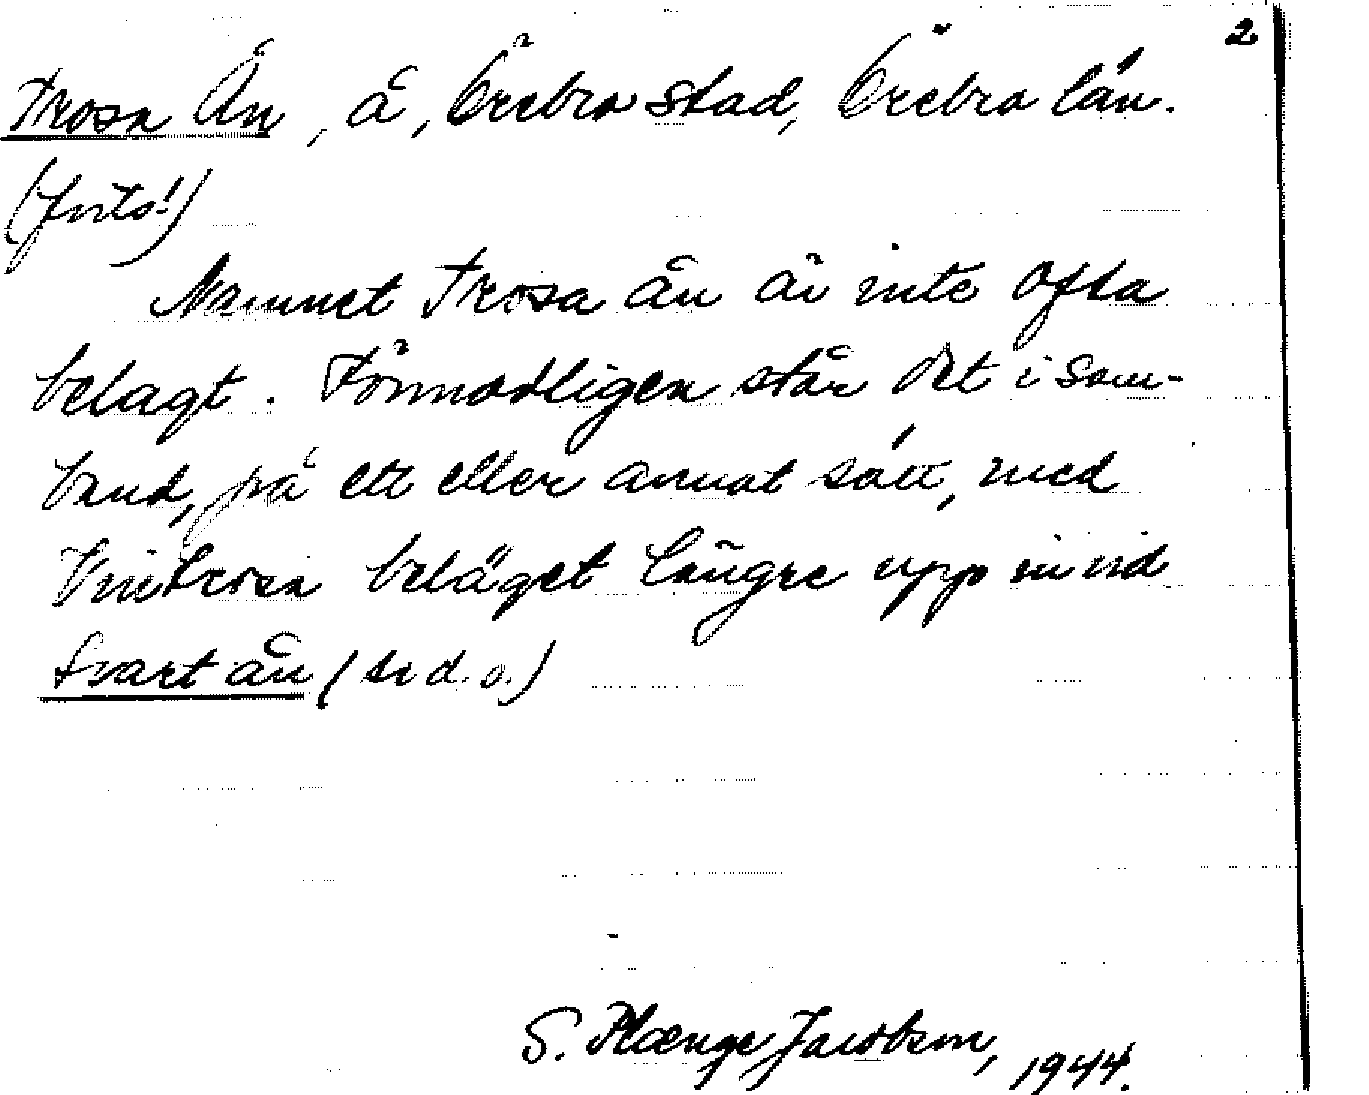 2
Trosa Ån, å, Örebro stad, Örebro län.
(forts!)
Namnet Trosa ån är inte ofta
belagt. Förmodligen står det i sam-
band, på ett eller annat sätt, med
Vintrosa beläget längre upp vid
Svartån (se d. o.)
S. Plænge Jacobson, 1944.